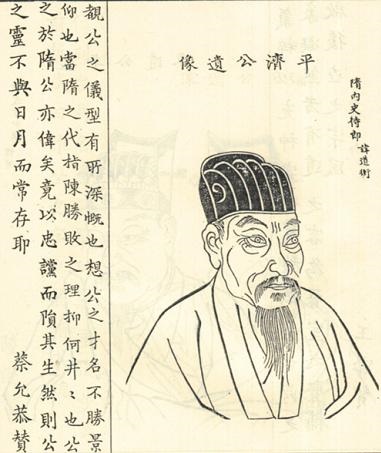 平濟公遺像
隋內史侍郎 諱道衡
觀公之儀型有所深慨也想公之才名不勝景
仰也當隋之代指陳勝敗之理抑何井〻也公
之於隋公亦偉矣竟以忠讜而隕其生然則公
之靈不與日月而常存耶 蔡允恭贊